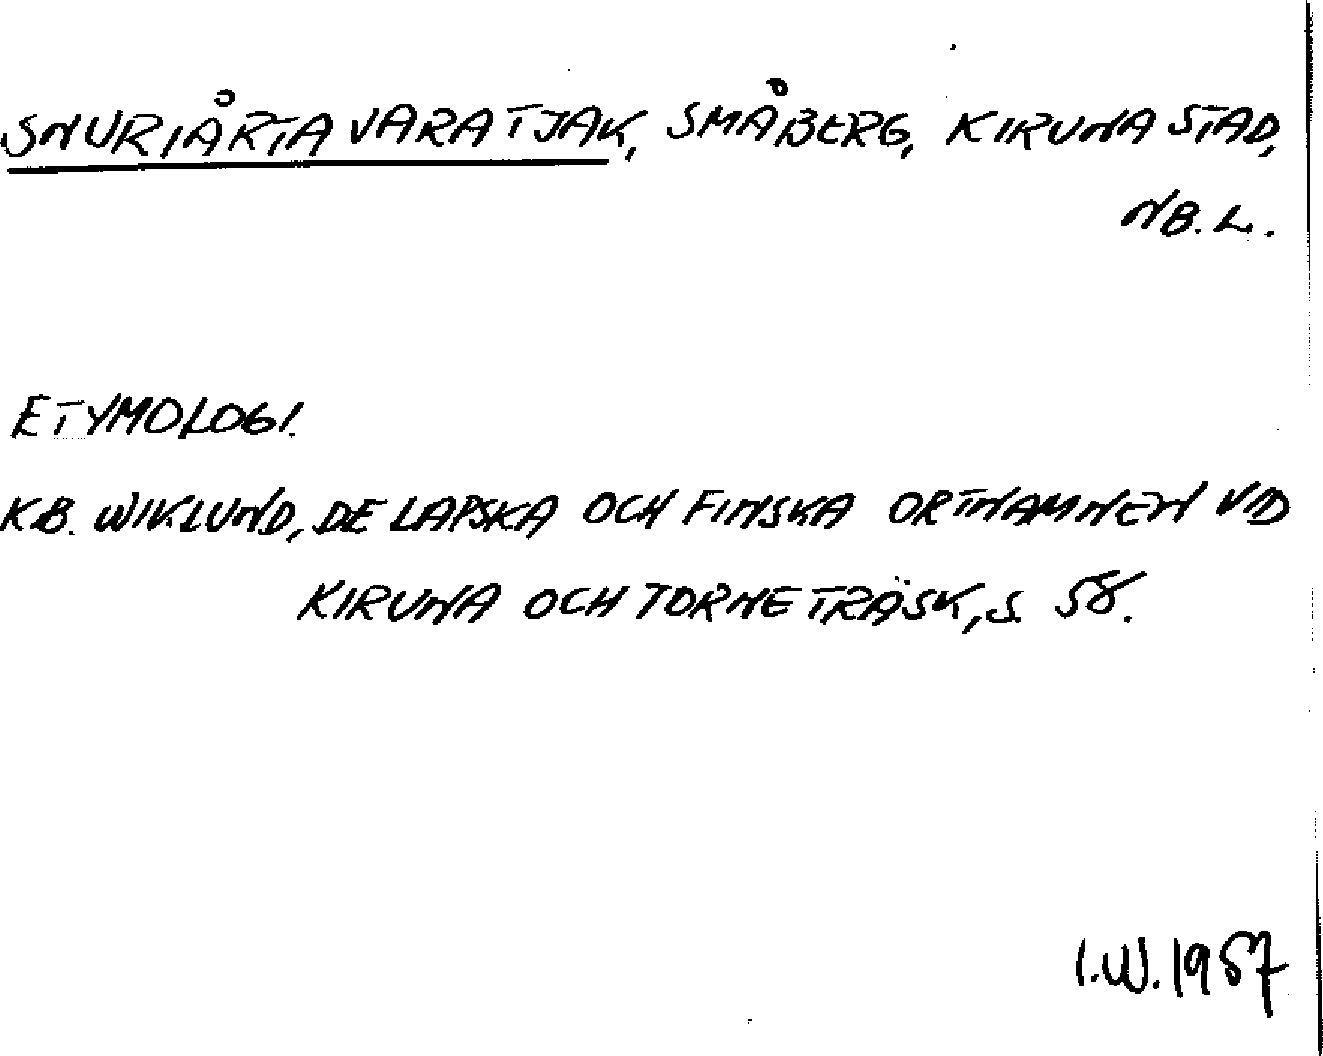 SNURIÅRTAVARATJAK, SMÅBERG, KIRUNA STAD,
NB.L.
ETYMOLOGI.
K.B. WIKLUND, DE LAPSKA OCH FINSKA ORTNAMNEN VID
KIRUNA OCH TORNETRÄSK, S. 58.
I.W. 1967